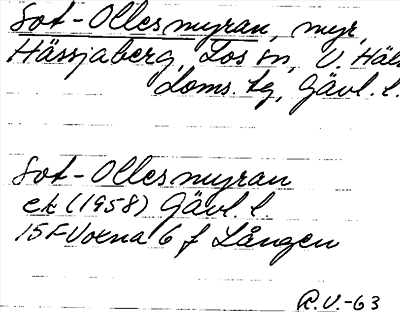 Sot-Ollesmyran, myr,
Hässjaberg, Los sn, V. Häls
doms. tg, Gävl. l.
Sot-Ollesmyran
ek (1958) Gävl. l.
15F Voxna 6 f Lången
R.V.-63